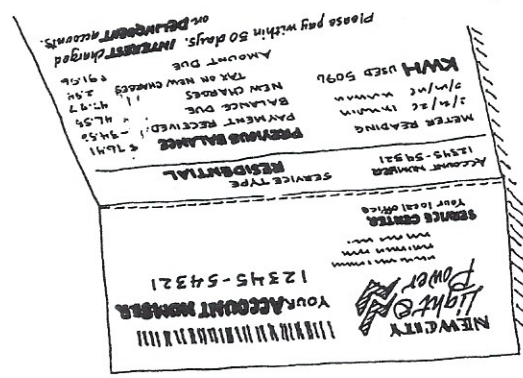 NEWCITY
Light &
Power
YOUR ACCOUNT NUMBER
12345-54321
SERVICE CENTER
Your local office
ACCOUNT NUMBER
12345-54321
SERVICE TYPE
RESIDENTIAL
METER READING
PREVIOUS BALANCE
PAYMENT RECEIVED
BALANCE DUE
NEW CHARGES 47.77
TAX ON NEW CHARGES
AMOUNT DUE $91.56
KWH USED 5096
Please pay within 50 days. INTEREST charged
on DELINQUENT accounts.